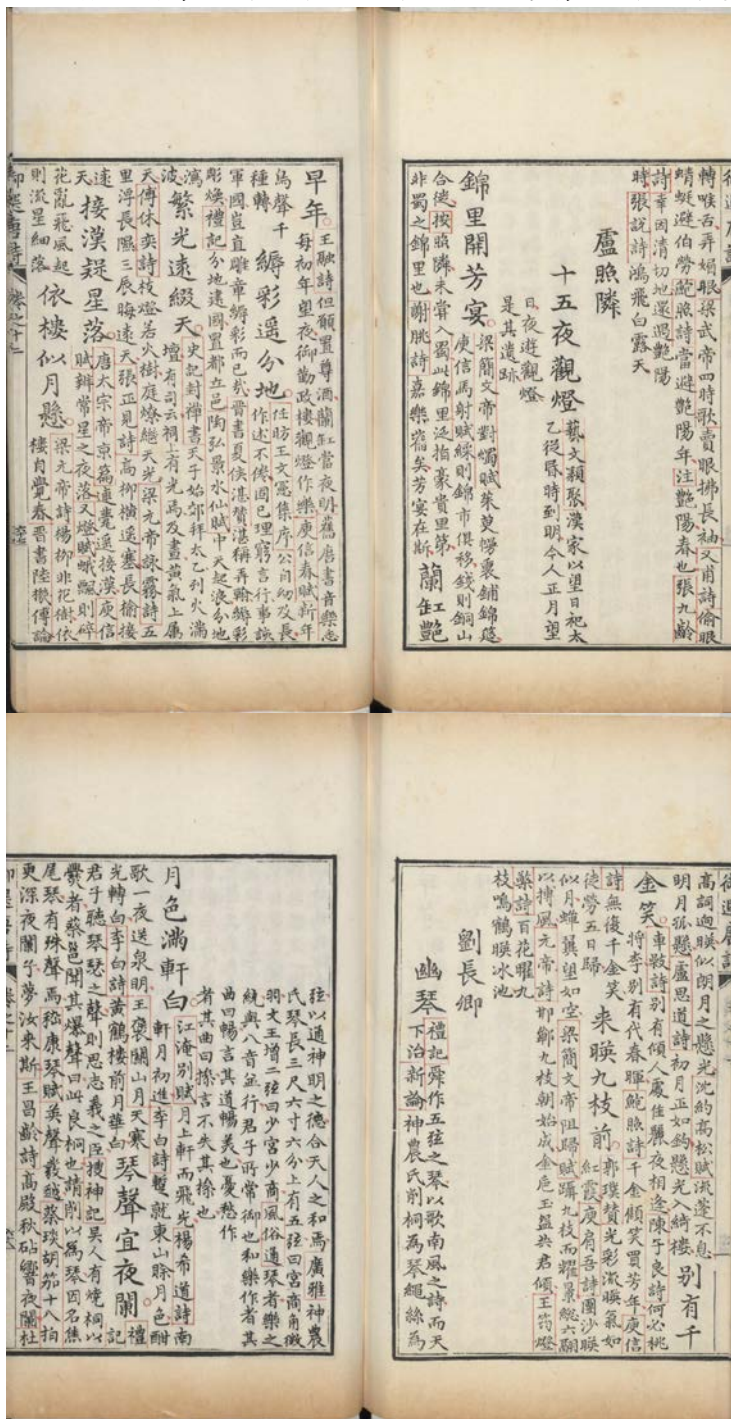 轉喉舌弄媚眼梁武帝四時歌賣眼拂長袖又甫詩偷眼
蜻蜓避伯勞鮑照詩當避艷陽年注艷陽春也張九齡
詩幸因清切地還遇艷陽
時張說詩鴻飛白露天
盧照隣
十五夜觀燈
藝文類聚漢家以望日祀太
乙從昏時到明今人正月望
日夜遊觀燈
是其遺跡
錦里開芳宴
梁簡文帝對燭賦茱萸幔裏鋪錦筵
庾信馬射賦綵則錦市俱移錢則銅山
合徙按照隣未嘗入蜀此錦里泛指豪貴里第
非蜀之錦里也謝朓詩嘉樂宿矣芳宴在斯
蘭缸艷
早年
王融詩但願置尊酒蘭缸當夜明舊唐書音樂志
每初年望夜御勤政樓觀燈作樂庾信春賦新年
鳥聲千
種轉
縟彩遥分地
任昉王文憲集序公自幼及長
作述不倦固已理窮言行事該
軍國豈直雕章縟彩而已哉晉書夏侯湛贊湛稱再翰縟彩
彫煥禮記分地建國置都立邑陶弘景水仙賦中天起浪分地
瀉
波
繁光遠綴天
史記封禪書天子始郊拜太乙列火滿
壇有司云祠上有光焉及晝黄氣上屬
天傅休奕詩枝燈若火樹庭燎繼天光梁元帝詠霧詩五
里浮長隰三辰晦遠天張正見詩高柳橫遥塞長榆接
遠
天
接漢疑星落
唐太宗帝京篇連甍遥接漢庾信
賦辨常星之夜落又燈賦蛾飄則碎
花亂飛風起
則流星細落
依樓似月懸
梁元帝詩楊柳非花樹依
樓自覺春晉書陸機傳論
御選唐詩 卷之十七
高詞迥暎似朗月之懸光沈約高松賦流蓬不息
明月孤懸盧思道詩初月正如鉤懸光入綺樓
别有千
金笑
車㪇詩别有傾人處佳麗夜相逢陳子良詩何必桃
將李别有代春暉鮑照詩千金傾笑買芳年庾信
詩無復千金笑
徒勞五日歸
来暎九枝前
郭璞贊光彩流暎氣如
紅霞庾肩吾詩團沙暎
似月蟬翼望如空梁簡文帝阻歸賦躡九枝而耀景總六翮
以摶風元帝詩邯鄲九枝朝始成金巵玉盌共君傾王筠燈
藥詩百花曜九
枝鳴鶴暎冰池
劉長卿
幽琴
禮記舜作五弦之琴以歌南風之詩而天
下治新論神農氏削桐為琴繩絲為
弦以通神明之德合天人之和焉廣雅神農
氏琴長三尺六寸六分上有五弦曰宮商角徵
羽文王增二弦曰少宮少商風俗通琴者樂之
統與八音並行君子所常御也和樂作者其
曲曰暢言其道暢美也憂愁作
者其曲曰操言不失其操也
月色滿軒白
江淹别賦月上軒而飛光楊希道詩南
軒月初進李白詩暫就東山賒月色酣
歌一夜送泉明王褒關山月天寒
光轉白李白詩黃鶴樓前月華白
琴聲宜夜闌
禮
記
君子聽琴瑟之聲則思志義之臣搜神記吳人有燒桐以
爨者蔡邕聞其爆聲曰此良桐也請削以為琴因名焦
尾琴有殊聲焉嵇康琴賦英聲發越蔡琰胡笳十八拍
更深夜闌兮夢汝来斯王昌齡詩高殿秋砧響夜闌杜